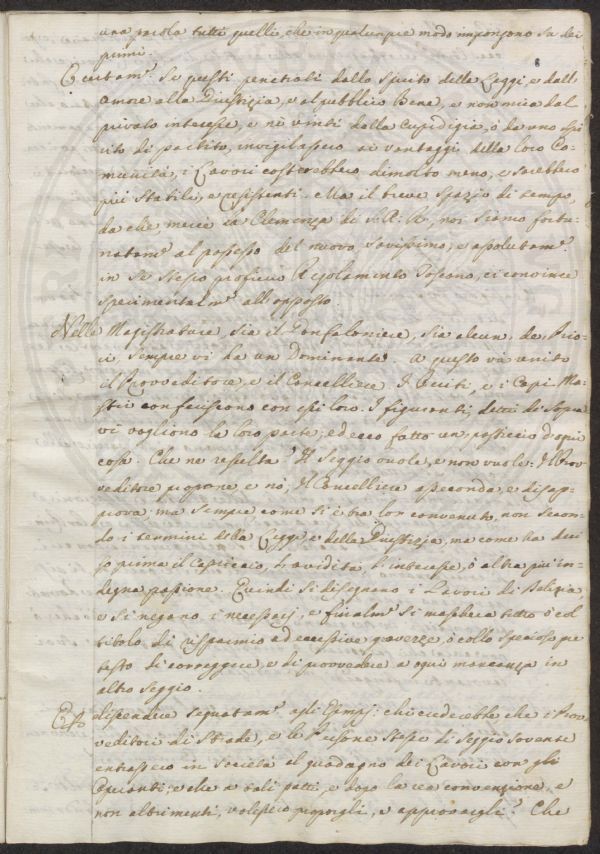 una parola tutti quelli, che in qualunque modo impongono sa dei
primi.
Certam.e Se questi penetrati dallo spirito delle Leggi, e dall
amore alla Giustizia, e al pubblico Bene, e non mica dal
privato interesse, e nè vinti dalla Cupidigia, ò da uno spi
rito di partito, invigilassero ai vantaggi della loro Co=
munità, i Lavori costerebbero dimolto meno, e sarebbero
più stabili, e resistenti. Ma il breve spazio di tempo,
da che mercè la Clemenza di S. A. R., noi siamo fortu=
natam.e al possesso del nuovo savissimo, e assolutam.e
in Se stesso proficuo Regolamento Toscano, ci convince
sperimentalm.e all'opposto.
Nelle Magistrature sia il Gonfaloniere, sia alcun de Prio=
ri sempre vi ha un Dominante. A questo và unito
il Provveditore, e il Cancelliere. I Periti, e i Capi Ma=
stri conferiscono con essi loro. I figuranti, detti di sopra
vi vogliono la loro parte; ed ecco fatto un pasticcio d'ogni
cosa. Che ne resulta? Il Seggio vuole, e non vuole: Il Prov
veditore propone e nò; Il Cancelliere asseconda, e disap=
prova: ma sempre come si è tra lor convenuto, non secon=
do i termini della Legge, e della Giustizia, ma come ha deci
so prima il Capriccio, l'avidità l'interesse, ò altra più in=
degna passione. Quindi si disegnano i Lavori di
e si negano i necessarj, e finalm.e si maschera tutto ò col
titolo di risparmio ad eccessive gravezze, ò collo specioso pre
testo di correggere e di provvedere a ogni mancanza in
altro seggio.
discendere seguitam.e agli Esempj: chi crederebbe che i Prov=
veditori di Strade, e le Persone stesse di seggio sovente
entrassero in società al guadagno dei Lavori con gli
e che a tali patti, e dopo la rea convenzione, e
non altrimenti, volessero proporgli, e approvargli? Che